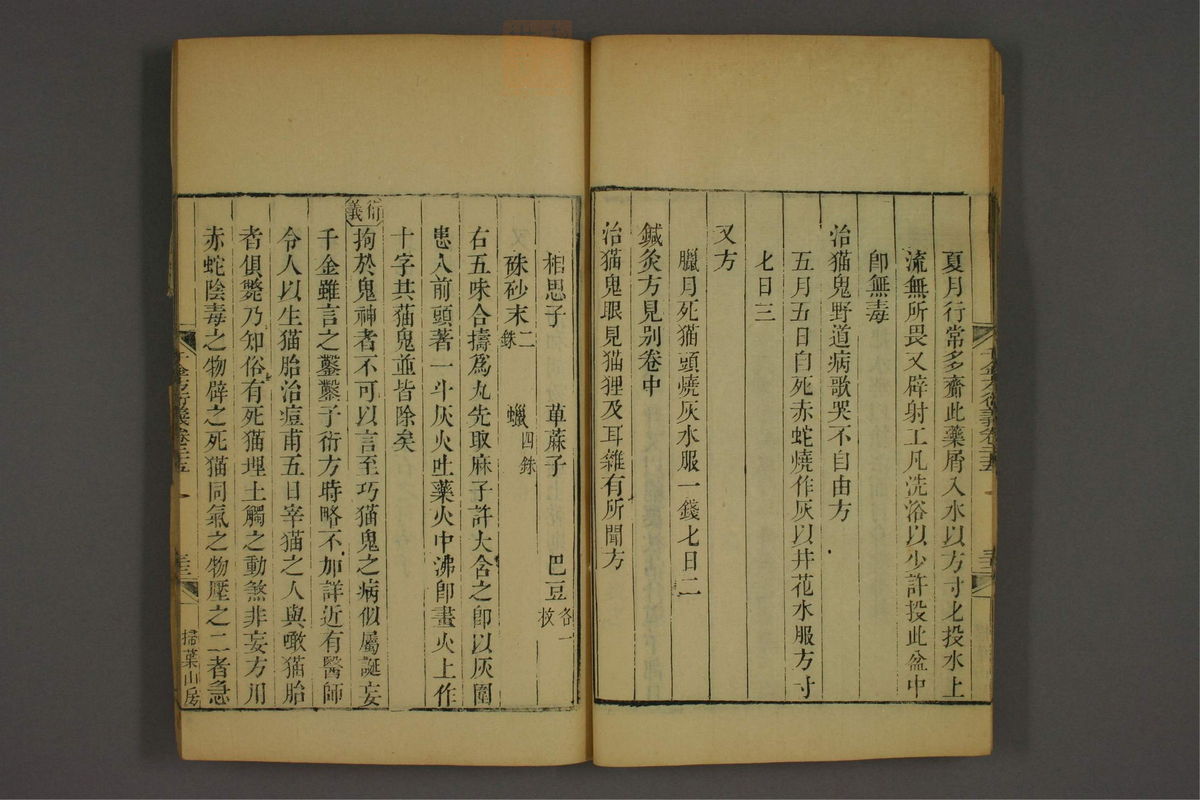 夏月行常多齎此藥屑入水以方寸匕投水上
流無所畏又辟射工凡洗浴以少許投此盆中
卽無毒
治猫鬼野道病歌哭不自由方
五月五日自死赤蛇燒作灰以井花水服方寸
七日三
又方
臘月死猫頭燒灰水服一錢七日二
鍼灸方見別卷中
治猫鬼眼見猫狸及耳雜有所聞方
千金方衍義卷二十五
相思子 萆蔴子 巴豆各一枚
硃砂末二銖 蠟四銖
右五味合擣爲丸先取麻子許大含之卽以灰圍
患人前頭著一斗灰火吐藥火中沸卽畫火上作
十字共猫鬼並皆除矣
衍義
拘於鬼神者不可以言至巧猫鬼之病似屬誕妄
千金雖言之鑿鑿子衍方時略不加詳近有醫師
令人以生猫胎治痘甫五日宰猫之人與噉猫胎
者俱斃乃知俗有死猫埋土觸之動煞非妄方用
赤蛇陰毒之物辟之死猫同氣之物壓之二者急
千金方衍義卷二十五
三十三
掃葉山房